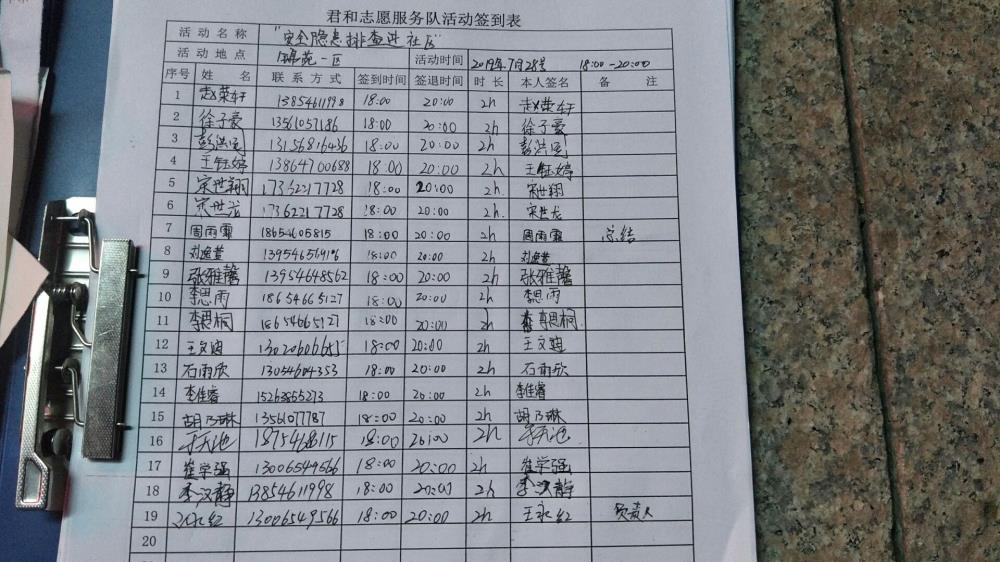 君和志愿服务队活动签到表
活动名称 "安全隐患排查进社区"
活动地点 苑一区 活动时间 2019年7月28号 18:00-20:00
序号 姓名 联系方式 签到时间 签退时间 时长 本人签名 备注
1 赵荣轩 13854611998 18:00 20:00 2h 赵荣轩
2 徐子豪 13561057186 18:00 20:00 2h 徐子豪
3 18:00 20:00 2h
4 王钰婷 13864700688 18:00 20:00 2h 王钰婷
5 宋世翔 17362217728 18:00 20:00 2h 宋世翔
6 宋世龙 17362217728 18:00 20:00 2h. 宋世龙
7 周雨霏 18654605815 18:00 20:00 2h 周雨霏 总结
8 18:00 20:00 2h
9 张雅馨 13954648562 18:00 20:00 2h 张雅馨
10 李思雨 18654665127 18:00 20:00 2h 李思雨
11 李思桐 18654665127 18:00 20:00 2h 李思桐
12 王文迪 13020606655 18:00 20:00 2h 王文迪
13 石雨欣 13054604353 18:00 20:00 2h 石雨欣
14 李佳睿 15263855273 18:00 20:00 2h 李佳睿
15 胡乃琳 13561077787 18:00 20:00 2h 胡乃琳
16 18754668115 18:00 20:00 2h
17 崔学强 13006549566 18:00 20:00 2h 崔学强
18 李汉静 13854611998 18:00 20:00 2h 李汉静
19 王永红 13006549566 18:00 20:00 2h 王永红 负责人
20